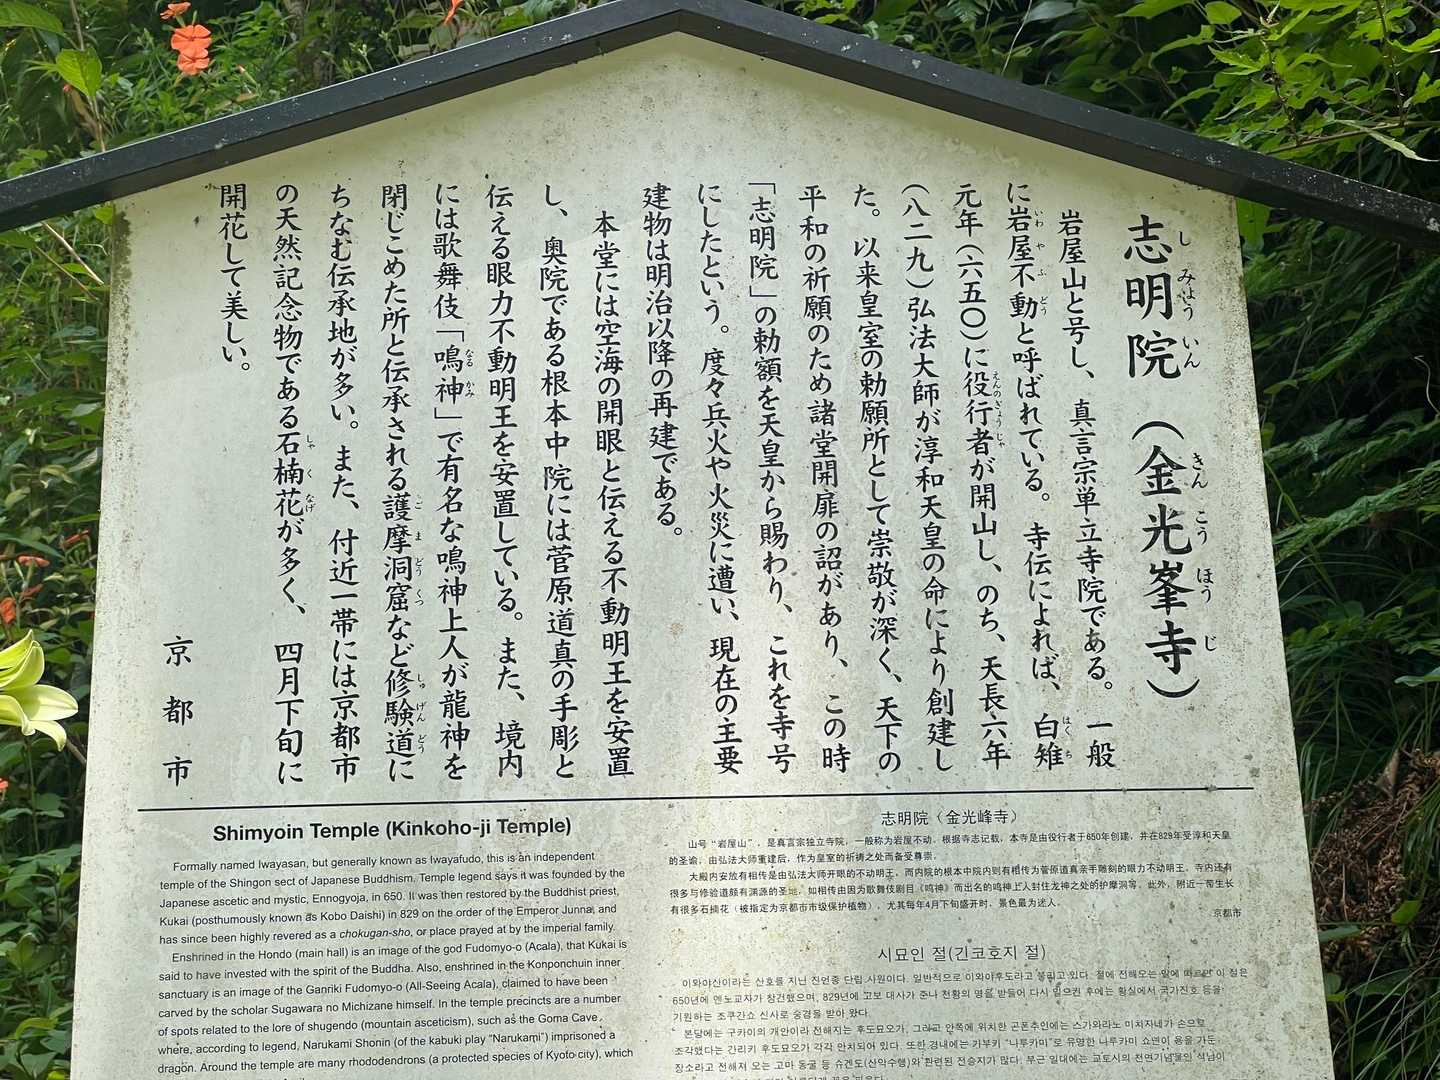 志明院（金光峯寺）
岩屋山と号し、真言宗単立寺院である。一般
に岩屋不動と呼ばれている。寺伝によれば、白雉
元年（六五〇）に役行者が開山し、のち、天長六年
（八二九）弘法大師が淳和天皇の命により創建し
た。以来皇室の勅願所として崇敬が深く、天下の
平和の祈願のため諸堂開扉の詔があり、この時
「志明院」の勅額を天皇から賜わり、これを寺号
にしたという。度々兵火や火災に遭い、現在の主要
建物は明治以降の再建である。
本堂には空海の開眼と伝える不動明王を安置
し、奥院である根本中院には菅原道真の手彫と
伝える眼力不動明王を安置している。また、境内
には歌舞伎「鳴神」で有名な鳴神上人が龍神を
閉じこめた所と伝承される護摩洞窟など修験道に
ちなむ伝承地が多い。また、付近一帯には京都市
の天然記念物である石楠花が多く、四月下旬に
開花して美しい。
京都市
Shimyoin Temple (Kinkoho-ji Temple)
Formally named Iwayasan, but generally known as Iwayafudo, this is an independent
temple of the Shingon sect of Japanese Buddhism. Temple legend says it was founded by the
Japanese ascetic and mystic, Ennogyoja, in 650. It was then restored by the Buddhist priest,
Kukai (posthumously known as Kobo Daishi) in 829 on the order of the Emperor Junna, and
has since been highly revered as a chokugan-sho, or place prayed at by the imperial family.
Enshrined in the Hondo (main hall) is an image of the god Fudomyo-o (Acala), that Kukai is
said to have invested with the spirit of the Buddha. Also, enshrined in the Konponchuin inner
sanctuary is an image of the Ganriki Fudomyo-o (All-Seeing Acala), claimed to have been
carved by the scholar Sugawara no Michizane himself. In the temple precincts are a number
of spots related to the lore of shugendo (mountain asceticism), such as the Goma Cave,
where, according to legend, Narukami Shonin (of the kabuki play "Narukami") imprisoned a
dragon. Around the temple are many rhododendrons (a protected species of Kyoto city), which
志明院（金光峰寺）
山号“岩屋山”，是真言宗独立寺院，一般称为岩屋不动。根据寺志记载，本寺是由役行者于650年创建，并在829年受淳和天皇
的圣谕，由弘法大师重建后，作为皇室的祈祷之处而备受尊崇。
大殿内安放有相传是由弘法大师开眼的不动明王，而内院的根本中院内则有相传为菅原道真亲手雕刻的眼力不动明王，寺内还有
很多与修验道颇有渊源的圣地，如相传由因为歌舞伎剧目《鸣神》而出名的鸣神上人封住龙神之处的护摩洞等。此外，附近一带生长
有很多石楠花（被指定为京都市市级保护植物），尤其每年4月下旬盛开时，景色最为迷人。
京都市
시묘인 절(긴코호지 절)
이와야산이라는 산호를 지닌 진언종 단립 사원이다. 일반적으로 이와야후도라고 불리고 있다. 절에 전해오는 말에 따르면 이 절은
650년에 엔노교자가 창건했으며, 829년에 고보 대사가 준나 천황의 명을 받들어 다시 일으킨 후에는 황실에서 국가진호 등을
기원하는 조쿠간쇼 신사로 숭경을 받아 왔다.
본당에는 구카이의 개안이라 전해지는 후도묘오가, 그리고 안쪽에 위치한 곤폰추인에는 스가와라노 미치자네가 손으로
조각했다는 간리키 후도묘오가 각각 안치되어 있다. 또한 경내에는 가부키 "나루카미"로 유명한 나루카미 쇼닌이 용을 가둔
장소라고 전해져 오는 고마 동굴 등 슈겐도(산악수행)와 관련된 전승지가 많다. 부근 일대에는 교토시의 천연기념물인 석남이